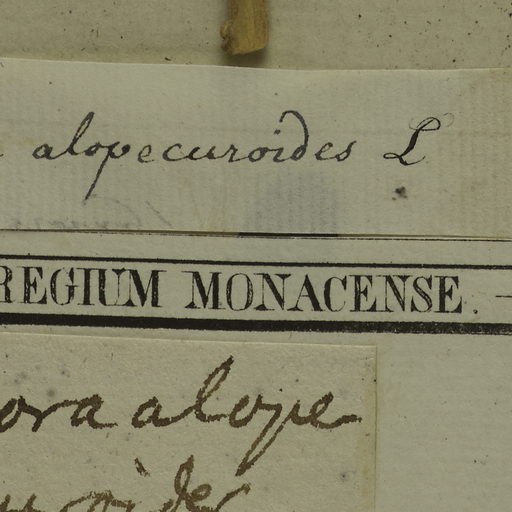 alopecuroides L
REGIUM MONACENSE.
ora alope
uroides